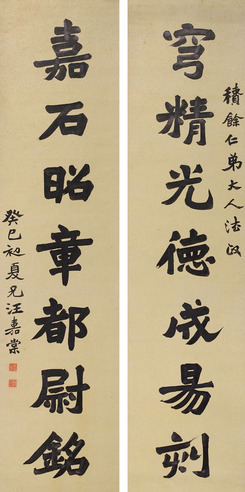 積餘仁弟大人法政
穹精光德成易刻
嘉石昭章都尉銘
癸巳初夏兄汪嘉棠